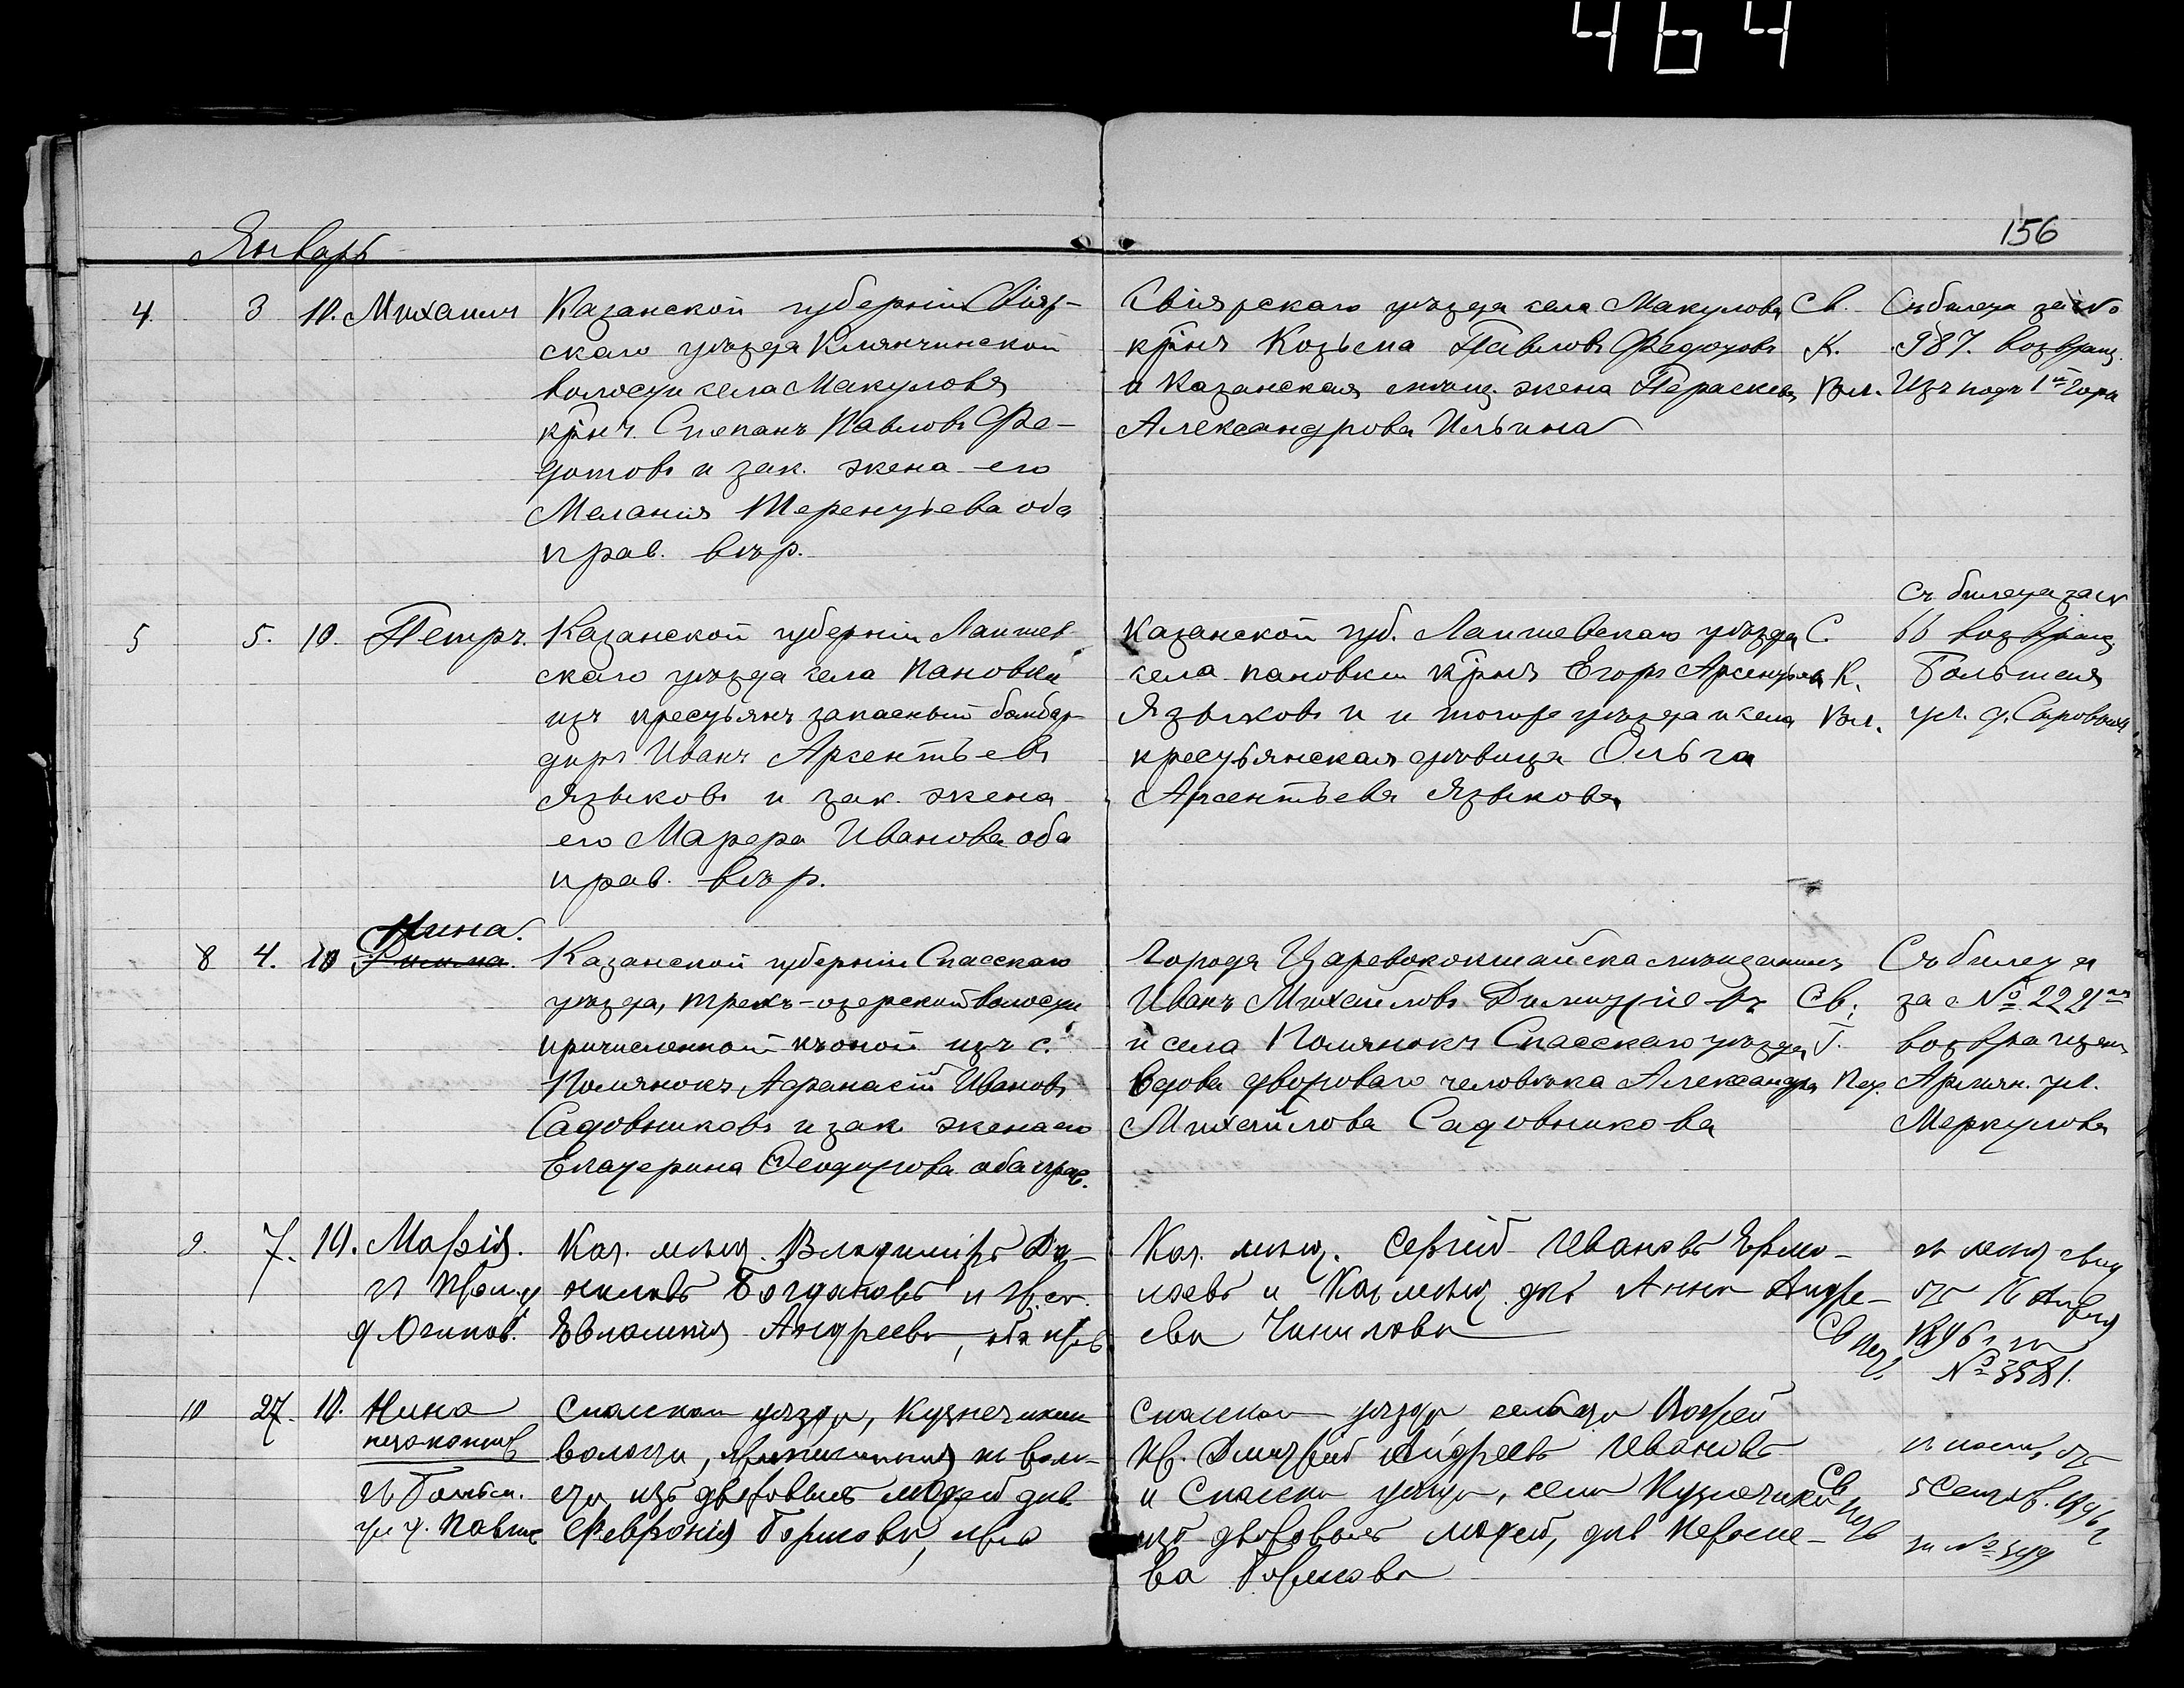 464
156
Январь
4. 3 10. Михаилъ
Казанской губерніи Свіяж-
скаго уѣзда Клянчинской
волости села Макулова
кр̃нъ Степанъ Павловъ Ѳе-
дотовъ и зак. жена его
Меланія Терентьева оба
прав. вѣр.
Свіяжскаго уѣзда села Макулова
кр̃нъ Козьма Павловъ Ѳедотовъ
и Казанская мѣщ. жена Параскева
Александрова Ильина
Св.
К.
Вл.
Съ билета за №
987. возвращ.
Изъ подъ 1й гора
5 5. 10. Петръ.
Казанской губерніи Лаишев-
скаго уѣзда села Пановки
изъ крестьянъ запасный бомбар-
диръ Иванъ Арсентьевъ
Языковъ и зак. жена
его Марѳа Иванова оба
прав. вѣр.
Казанской губ. Лаишевскаго уѣзда
села Пановки кр̃нъ Егоръ Арсентьевъ
Языковъ и и того же уѣзда и села
крестьянская дѣвица Ольга
Арсентьева Языкова
С.
К.
Вл.
Съ билета за №
66 возвращ
Большая
ул. д.
8 4. 10 Нина.
Римма.
Казанской губерніи Спасскаго
уѣзда, Трехъ-озерской волости
причисленной къ оной изъ с.
Полянокъ, Аѳанасій Ивановъ
Садовниковъ и зак жена его
Екатерина Ѳеодорова оба прав.
Города Царевококшайска мѣщанинъ
Иванъ Михайловъ Димитріевъ
и села Полянокъ Спасскаго уѣзда
вдова двороваго человѣка Александра
Михайлова Садовникова
Св.
Г.
Пех.
Съ билета
за № 2221
возвращен
Армян. ул.
Меркулова
9. 7. 10. Марія.
д Осипов.
Каз. мѣщ. Владиміръ Да-
ниловъ Богдановъ и
Евлампія Андреева, оба прав
Каз. мѣщ. Сергій Ивановъ Ермо-
лаевъ и Каз мѣщ. дѣв Анна Андре-
ева Чинилова
Св
1896 г за
№ 3581.
10 27. 10. Нина
незаконнор
ул д. Павлов
Спасскаго уѣзда, Кузнечихин
волости, причисленная къ воло-
сти, изъ дворовыхъ людей дѣв.
Февронія Горшкова, прав
Спасскаго уѣзда сельца
Кр. Дмитрій Андреевъ Ивановъ
и Спасска уѣзда, села Кузнечихи
изъ дворовыхъ людей, дѣв Параске-
ва Горшкова
Св
5 Сентяб. 1896 г
за №